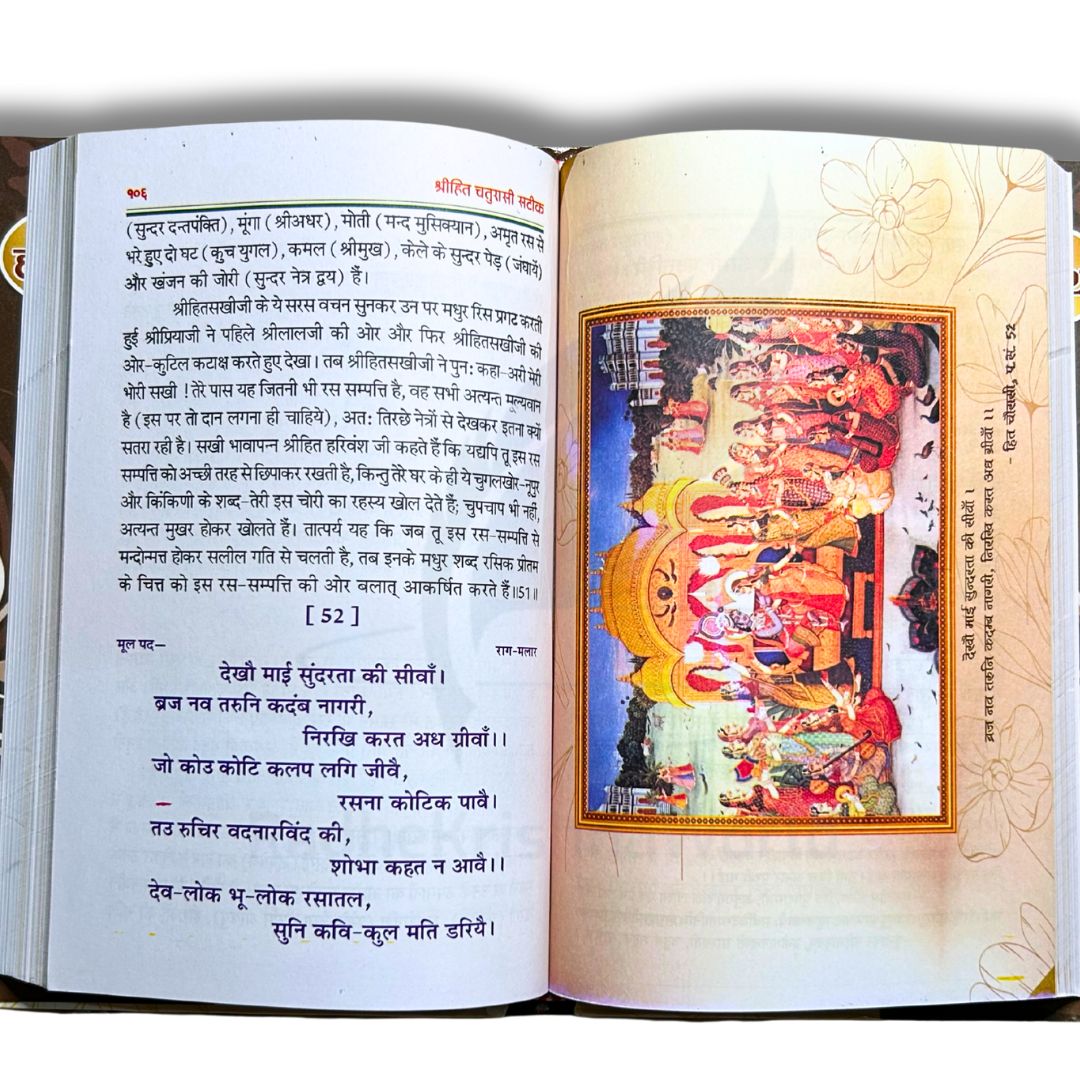 १०६ श्रीहित चतुरासी सटीक
(सुन्दर दन्तपंक्ति), मूंगा (श्रीअधर), मोती (मन्द मुसिक्यान), अमृत रस से
भरे हुए दो घट (कुच युगल), कमल (श्रीमुख), केले के सुन्दर पेड़ (जंघायें)
और खंजन की जोरी (सुन्दर नेत्र द्वय) हैं।
श्रीहितसखीजी के ये सरस वचन सुनकर उन पर मधुर रिस प्रगट करती
हुई श्रीप्रियाजी ने पहिले श्रीलालजी की ओर और फिर श्रीहितसखीजी की
ओर-कुटिल कटाक्ष करते हुए देखा। तब श्रीहितसखीजी ने पुन: कहा-अरी मेरी
भोरी सखी ! तेरे पास यह जितनी भी रस सम्पत्ति है, वह सभी अत्यन्त मूल्यवान
है (इस पर तो दान लगना ही चाहिये), अत: तिरछे नेत्रों से देखकर इतना क्यों
सतरा रही है। सखी भावापन्न श्रीहित हरिवंश जी कहते हैं कि यद्यपि तू इस रस
सम्पत्ति को अच्छी तरह से छिपाकर रखती है, किन्तु तेरे घर के ही ये चुगलखोर-नूपुर
और किंकिणी के शब्द-तेरी इस चोरी का रहस्य खोल देते हैं; चुपचाप भी नहीं,
अत्यन्त मुखर होकर खोलते हैं। तात्पर्य यह कि जब तू इस रस-सम्पत्ति से
मन्दोन्मत्त होकर सलील गति से चलती है, तब इनके मधुर शब्द रसिक प्रीतम
के चित्त को इस रस-सम्पत्ति की ओर बलात् आकर्षित करते हैं।।51।।
[ 52 ]
मूल पद— राग-मलार
देखौ माई सुंदरता की सीवाँ।
ब्रज नव तरुनि कदंब नागरी,
निरखि करत अध ग्रीवाँ।।
जो कोउ कोटि कलप लगि जीवै,
रसना कोटिक पावै।
तउ रुचिर वदनारविंद की,
शोभा कहत न आवै।।
देव-लोक भू-लोक रसातल,
सुनि कवि-कुल मति डरियै।
देखौ माई सुन्दरता की सीवाँ ।
ब्रज नव तरुनि कदम्ब नागरी, निरखि करत अध ग्रीवाँ ।।
- हित चौरासी, प.सं. 52